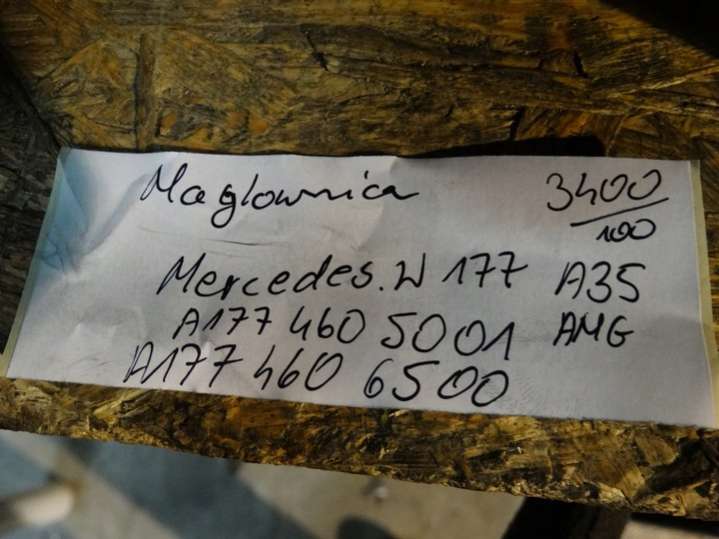 Maglownica 3400
100
Mercedes. W 177 A35
A177 460 5001 AMG
A177 460 6500